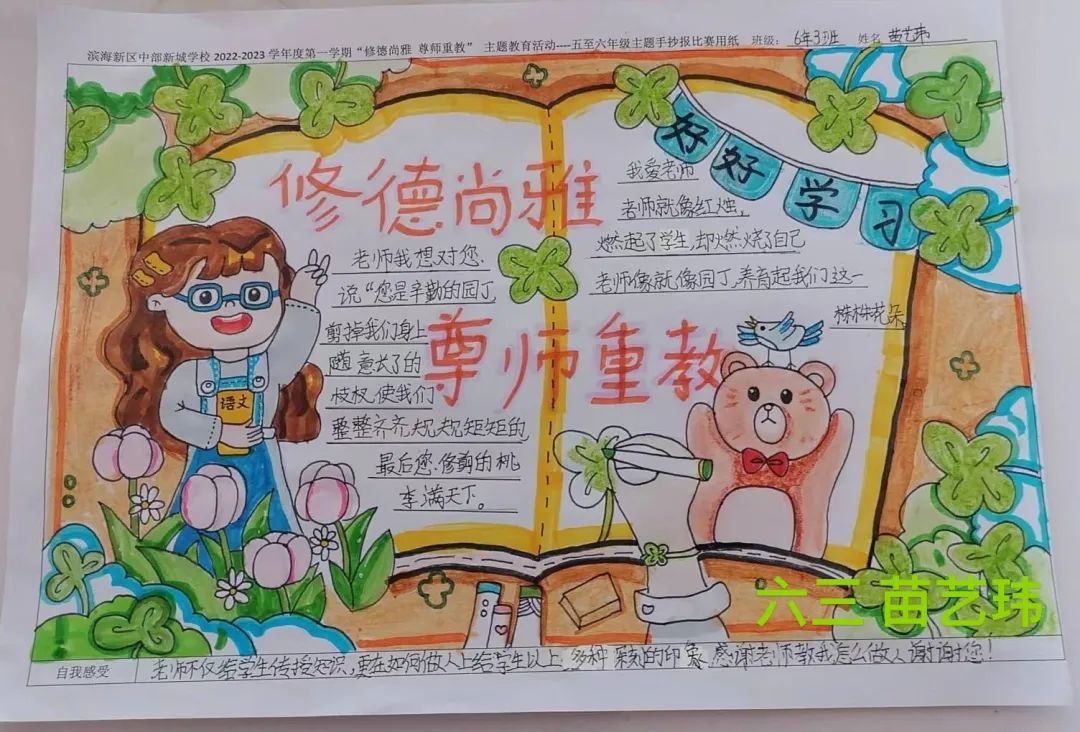 滨海新区中部新城学校 2022-2023 学年度第一学期“修德尚雅 尊师重教” 主题教育活动----五至六年级主题手抄报比赛用纸 班级： 6年3班 姓名 苗艺玮
好好学习
修德尚雅
老师我想对您
说“您是辛勤的园丁
剪掉我们身上
随意长了的
枝杈,使我们
整整齐齐,规规矩矩的,
最后您修剪的桃
李满天下。
我爱老师
老师就像红烛,
燃起了学生,却燃烧了自己
老师像就像园丁,养育起我们这一
株株花朵。
尊师重教
语文
六三 苗艺玮
自我感受 老师不仅给学生传授知识,更在如何做人上给学生以上 多种 的印象 感谢老师教我怎么做人谢谢您!